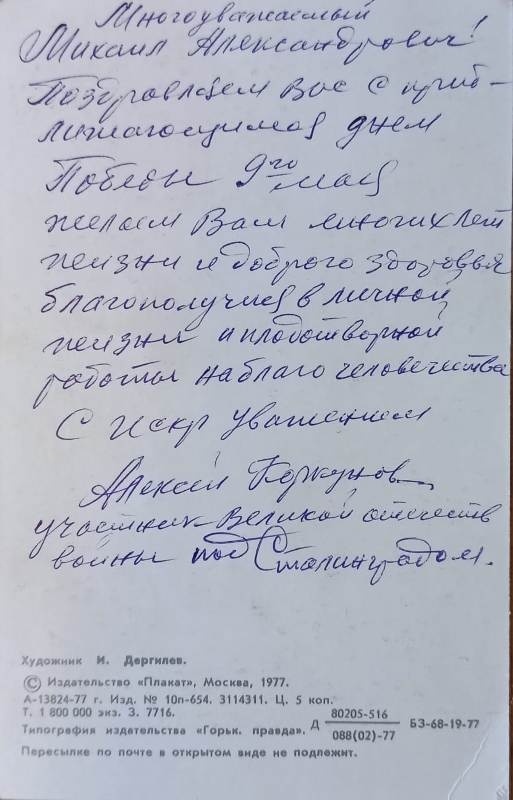 Многоуважаемый
Михаил Александрович!
Поздравляем Вас с приб-
лижающимся днем
Победы 9го мая
желаем Вам многих лет
жизни и доброго здоровья
благополучия в личной
жизни и плодотворной
работы на благо человечества
С искр уважением
Алексей Коркунов
участник Великой отечеств
войны под Сталинградом.
Художник И. Дергилев.
© Издательство «Плакат», Москва, 1977.
А-13824-77 г. Изд. № 10п-654. 3114311. Ц. 5 коп.
Т. 1 800 000 экз. З. 7716.
Типография издательства «Горьк. правда». Д 80205-516 / 088(02)-77 БЗ-68-19-77
Пересылке по почте в открытом виде не подлежит.